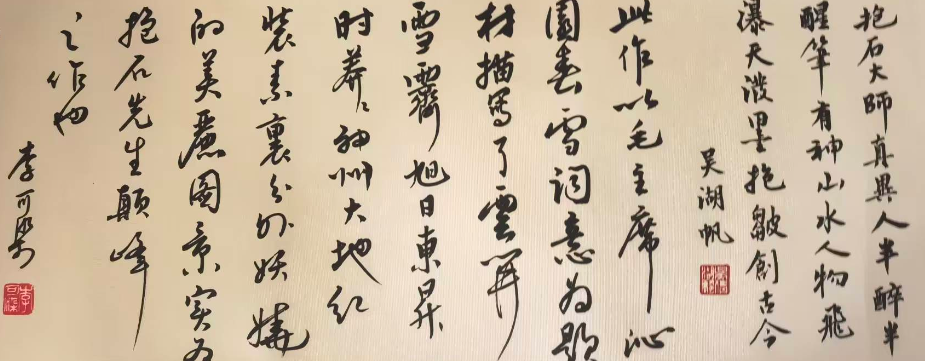 抱石大師真異人半醉半
醒筆有神山水人物飛
瀑天潑墨抱皴創古今
吳湖帆
此作以毛主席沁
園春雪詞意为題
材描寫了雲開
雪霽旭日東昇
时莽〻神州大地红
裝素裹分外妖嬈
的美麗圖景实为
抱石先生顛峰
之作也
李可染